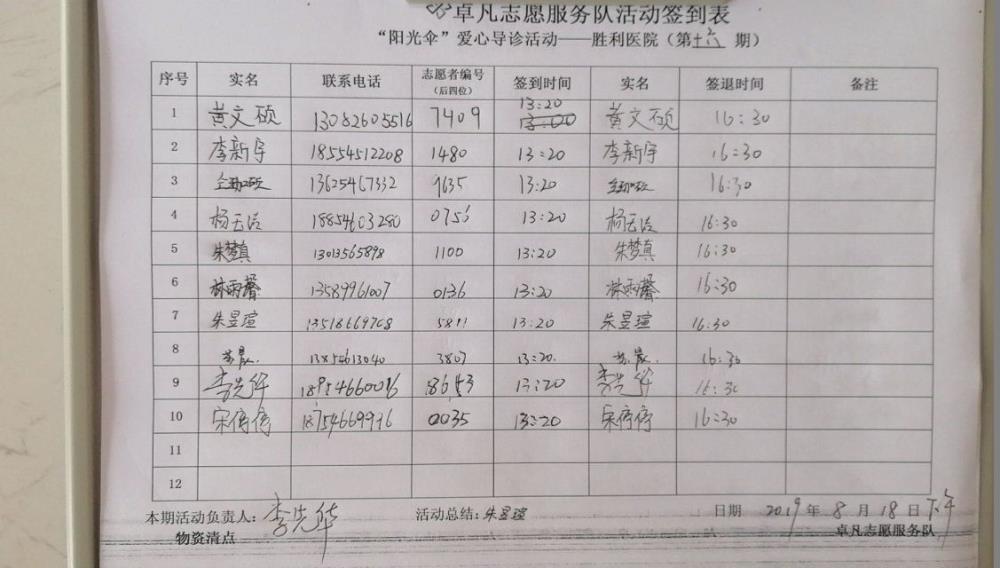 卓凡志愿服务队活动签到表
“阳光伞”爱心导诊活动——胜利医院（第十六期）
序号 实名 联系电话 志愿者编号（后四位） 签到时间 实名 签退时间 备注
1 黄文硕 13082605516 7409 13:20 13:00 黄文硕 16:30
2 李新宇 18554512208 1480 13:20 李新宇 16:30
3 13625467332 9635 13:20 16:30
4 杨云洁 18854603280 0756 13:20 杨云洁 16:30
5 朱梦真 13013565898 1100 13:20 朱梦真 16:30
6 林雨馨 13589961007 0136 13:20 林雨馨 16:30
7 朱昱瑄 13518669708 5811 13:20 朱昱瑄 16:30
8 苏晨 13854613040 3807 13:20 苏晨 16:30
9 李先华 18954660016 8653 13:20 李先华 16:30
10 宋停停 18754669996 0035 13:20 宋停停 16:30
11
12
本期活动负责人：李先华 活动总结：朱昱瑄 日期 2019年8月18日下午
物资清点 卓凡志愿服务队